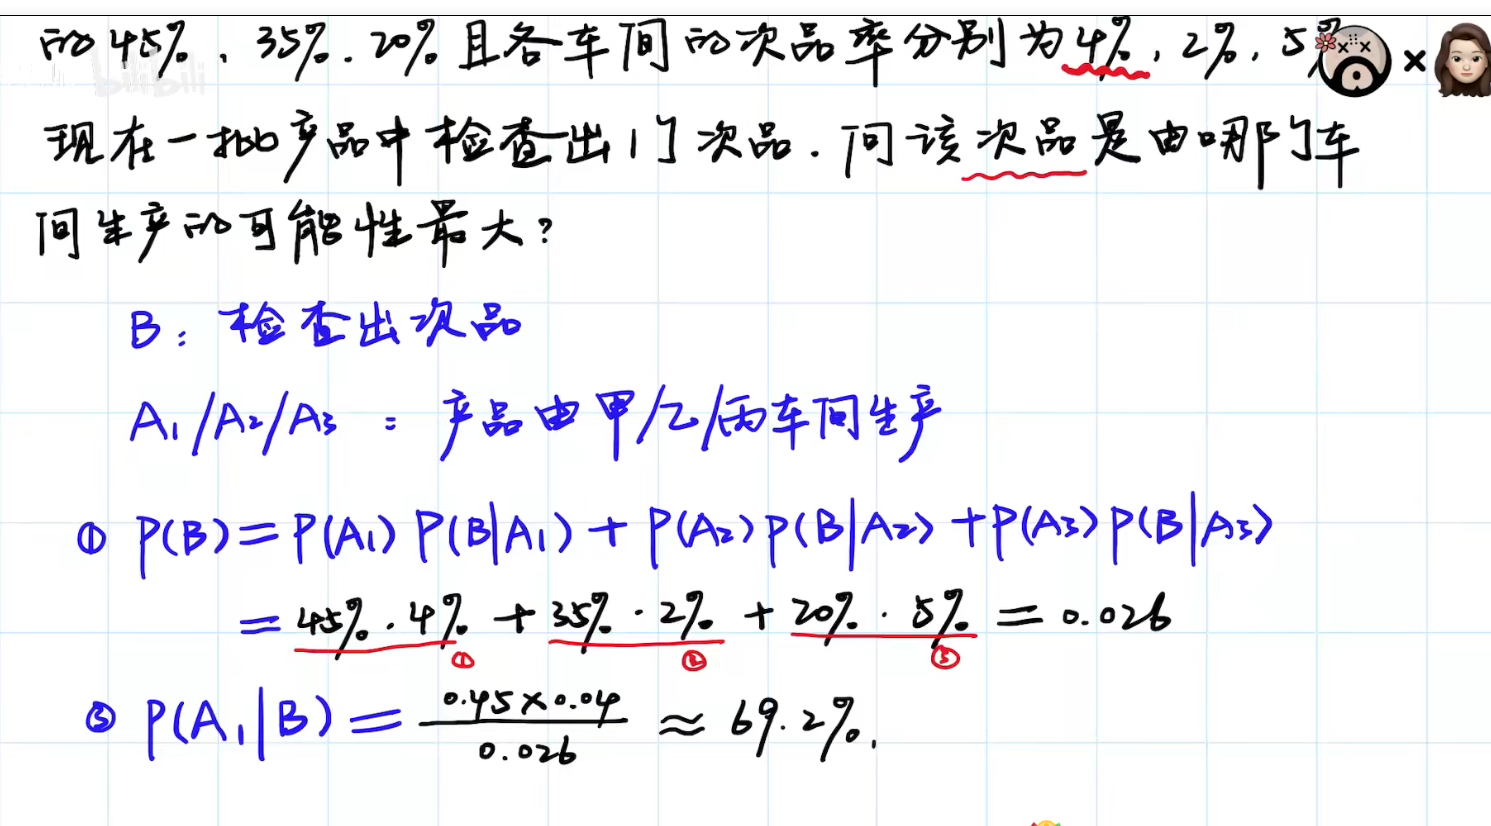 的45%、35%.20%且各车间的次品率分别为4%,2%,5%
bilibili
现在一批产品中检查出1个次品.问该次品是由哪个车
间生产的可能性最大?
B:检查出次品
A₁/A₂/A₃:产品由甲/乙/丙车间生产
① P(B)=P(A₁)P(B|A₁)+P(A₂)P(B|A₂)+P(A₃)P(B|A₃)
=45%·4%+35%·2%+20%·5%=0.026
① ② ③
③ P(A₁|B)=0.45×0.04/0.026≈69.2%.